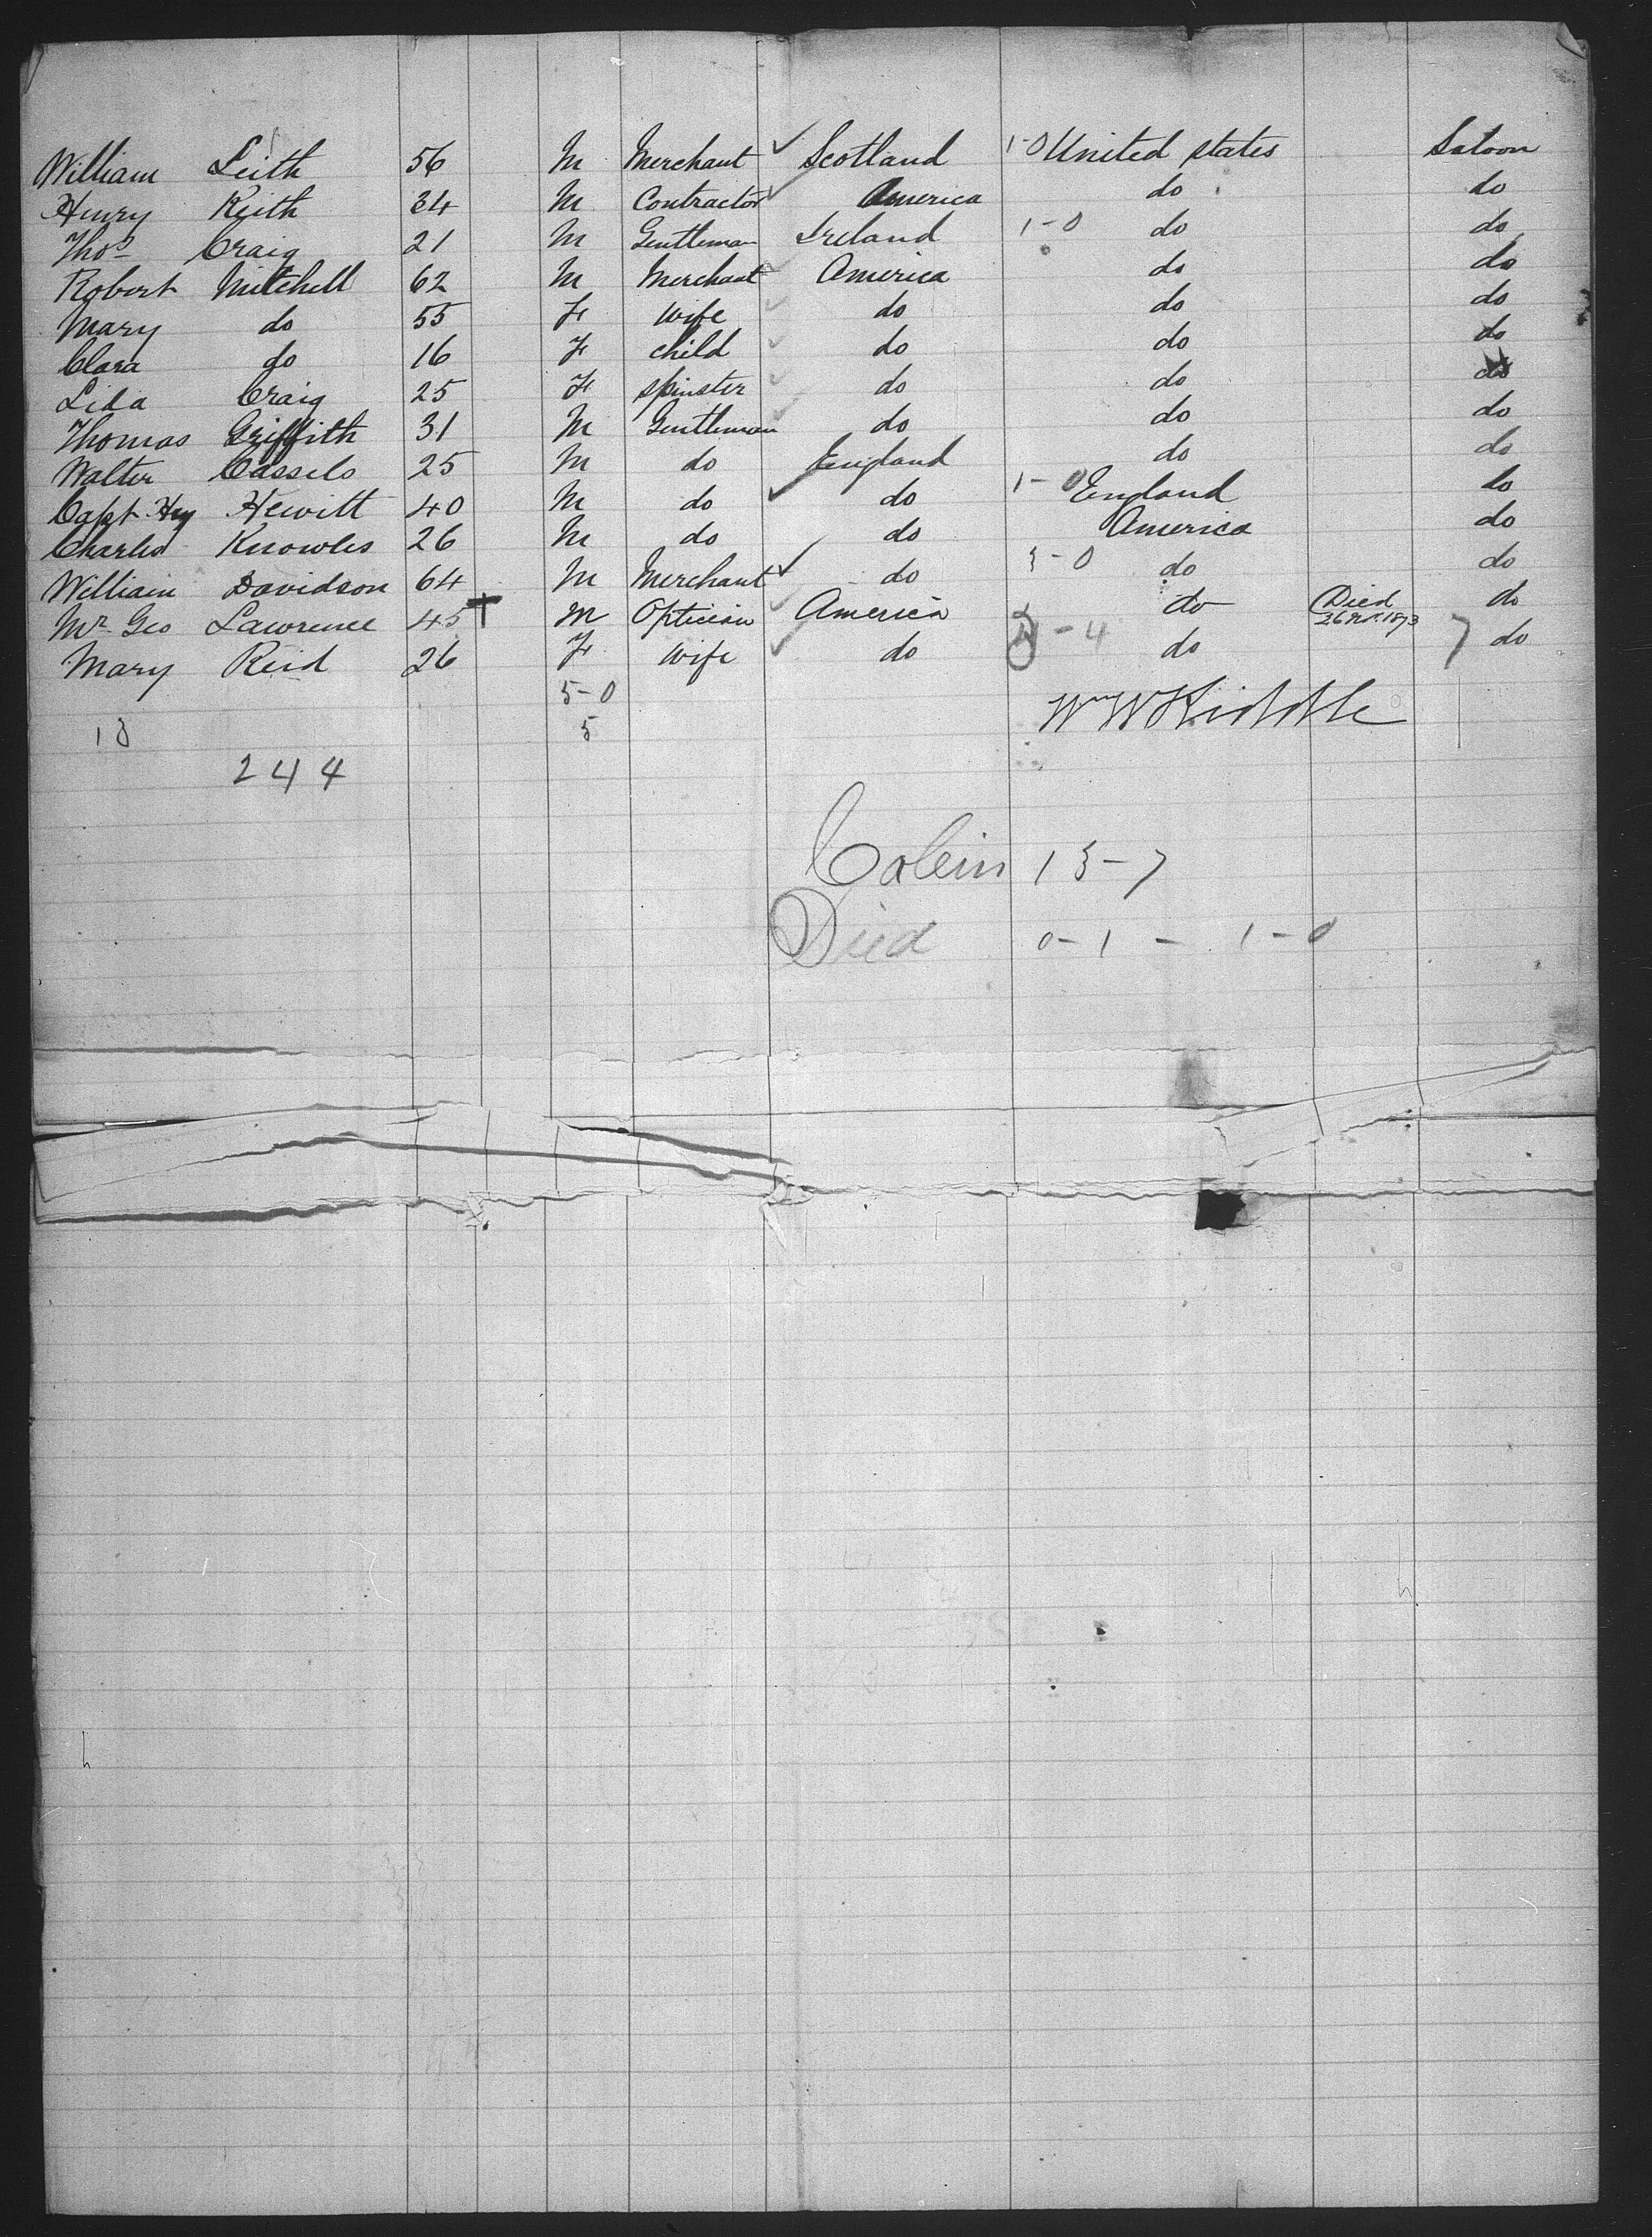 William Leith 56 M Merchant ✓ Scotland 1-0 United states Saloon
Henry Keith 34 M Contractor ✓ America do do
Thos Craig 21 M Gentleman Ireland 1-0 do do
Robert Mitchell 62 M Merchant ✓ America do do
Mary do 55 F wife ✓ do do do
Clara do 16 F child ✓ do do do
Lida Craig 25 F spinster ✓ do do do
Thomas Griffith 31 M Gentleman ✓ do do do
Walter Cassels 25 M do England do do
Capt Hy Hewitt 40 M do ✓ do 1-0 England do
Charles Knowles 26 M do do America do
William Davidson 64 M Merchant ✓ do 3-0 do do
Mr Geo Lawrence 45 + M Optician ✓ America do Died 26 Nov. 1873 do
Mary Reid 26 F wife ✓ do - 4 do 7 do
5-0
Wm W Kiddle
13 5
244
Cabin 13-7
Died 0-1 - 1-0